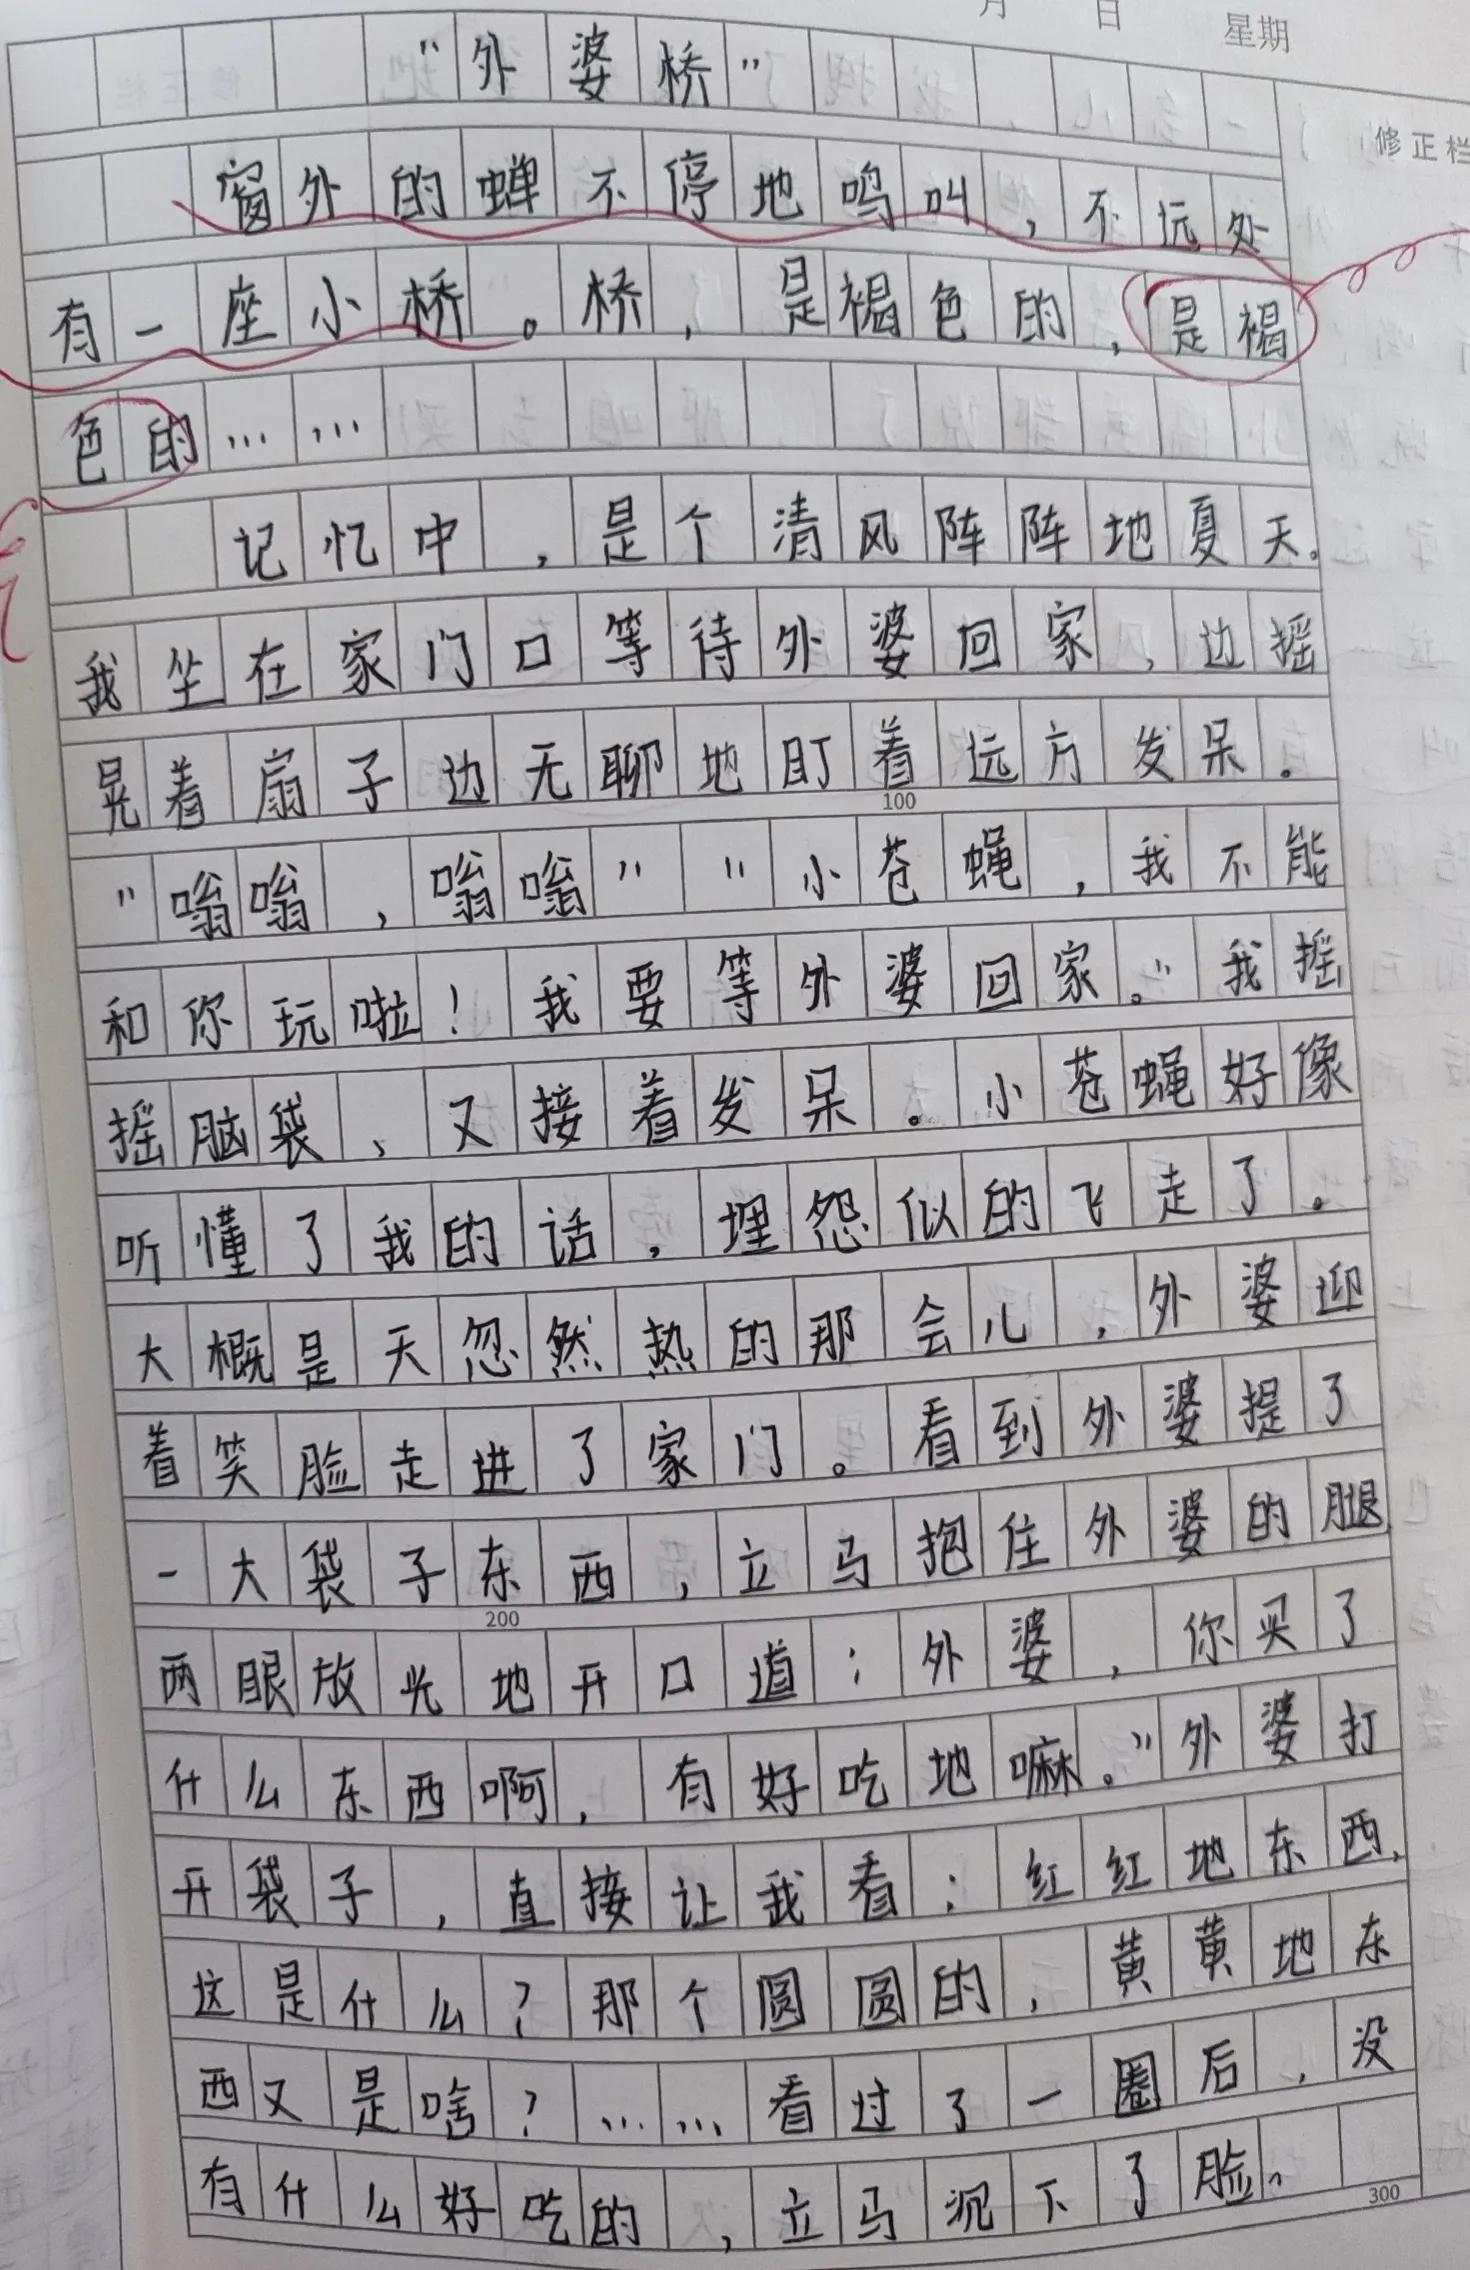 月 日 星期
修正栏
"外婆桥"
窗外的蝉不停地鸣叫,不远处
有一座小桥。桥,是褐色的,是褐
色的……
记忆中,是个清风阵阵地夏天。
我坐在家门口等待外婆回家,边摇
晃着扇子边无聊地盯着远方发呆。
100
"嗡嗡,嗡嗡""小苍蝇,我不能
和你玩啦!我要等外婆回家。"我摇
摇脑袋、又接着发呆。小苍蝇好像
听懂了我的话,埋怨似的飞走了。
大概是天忽然热的那会儿,外婆迎
着笑脸走进了家门。看到外婆提了
一大袋子东西,立马抱住外婆的腿
200
两眼放光地开口道:外婆,你买了
什么东西啊,有好吃地嘛。"外婆打
开袋子,直接让我看:红红地东西、
这是什么?那个圆圆的,黄黄地东
西又是啥?……看过了一圈后,没
有什么好吃的,立马沉下了脸。
300